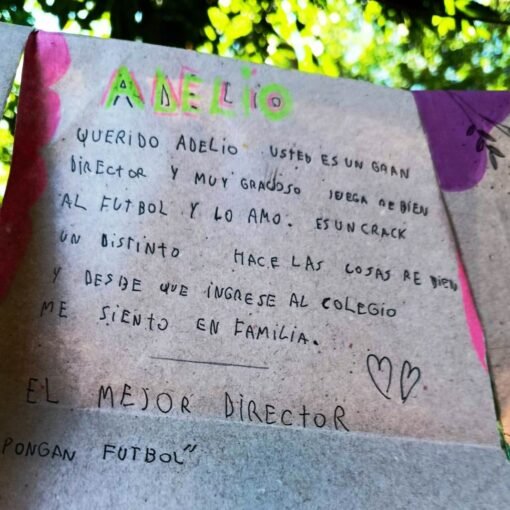 ADELIO
QUERIDO ADELIO USTED ES UN GRAN
DIRECTOR Y MUY GRACIOSO JUEGA RE BIEN
AL FUTBOL Y LO AMO. ES UN CRACK
UN DISTINTO HACE LAS COSAS RE BIEN
Y DESDE QUE INGRESE AL COLEGIO
ME SIENTO EN FAMILIA.
EL MEJOR DIRECTOR
PONGAN FUTBOL"